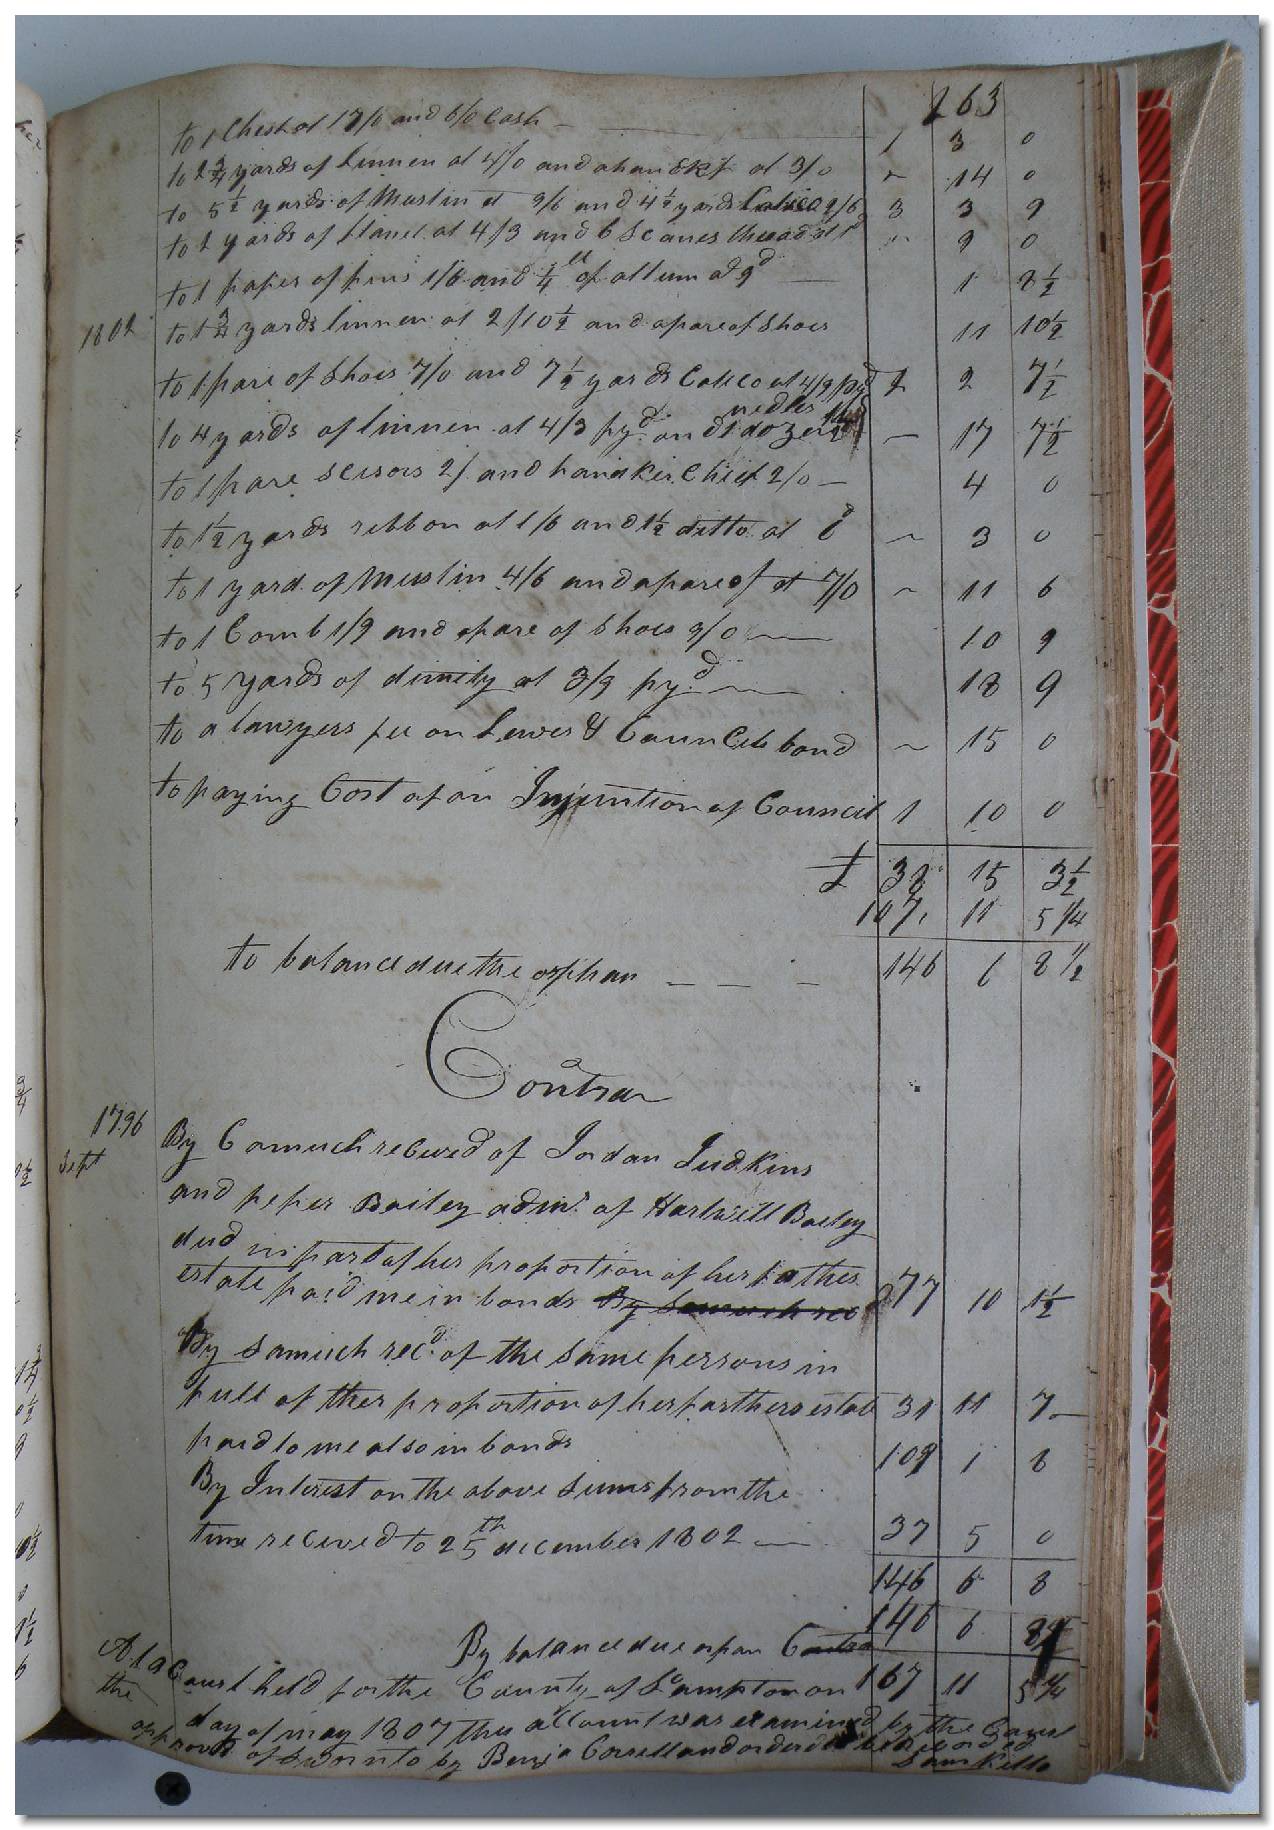 263
to 1 Chest at 17/0 and 6/0 Cash 1 3 0
to 2 3/4 yards of Linnen at 4/0 and a handkf at 3/0 14 0
to 5 1/2 yards of Muslin at 9/6 and 4 1/2 yards Calico 2/6 3 3 9
to 2 yards of flanel at 4/3 and 6 Scanes thread at 1d 9 0
to 1 paper of pins 1/6 and 1/4 lb of allum at 9d 1 8 1/2
1802 to 1 3/4 yards linnen at 2/10 1/2 and a pare of Shoes 11 10 1/2
to 1 pare of Shoes 7/0 and 7 1/2 yards Calico at 4/9 pyd 2 2 7 1/2
nedles
to 4 yards of linnen at 4/3 pyd and 1 dozen 17 7 1/2
to 1 pare scisors 2/ and handkerchief 2/0 4 0
to 1 1/2 yards ribbon at 1/6 and 1 1/2 ditto at 6d 3 0
to 1 yard of Muslin 4/6 and a pare of at 7/0 11 6
to 1 Comb 1/9 and a pare of Shoes 9/0 10 9
to 5 yards of dimity at 3/9 pyd 18 9
to a lawyers fee on Lewis & Councils bond 15 0
to paying Cost of an Injuntion of Council 1 10 0
£ 38 15 3 1/2
107 11 5 1/4
to balance due the orphan 146 6 8 1/2
Contra
1796 By Somuch receved of Jordan Judkins
Sept and peper Bailey admr of Hartwill Bailey
decd in part of her proportion of her father
estate paid me in bonds By Somuch rec 77 10 1 1/2
By Samuch recd of the same persons in
full of ther proportion of her farthers estate 31 11 7
paid to me also in bonds 109 1 8
By Interest on the above Sums from the
time receved to 25th december 1802 37 5 0
146 6 8
146 6 8
By balance due as pr Contra
At a Court held for the County of Sampton on 107 11 5 1/4
the day of may 1807 this account was examined by the Court
approved of Sworn to by Benja Correll and orderd to be recorded
Saml Kello